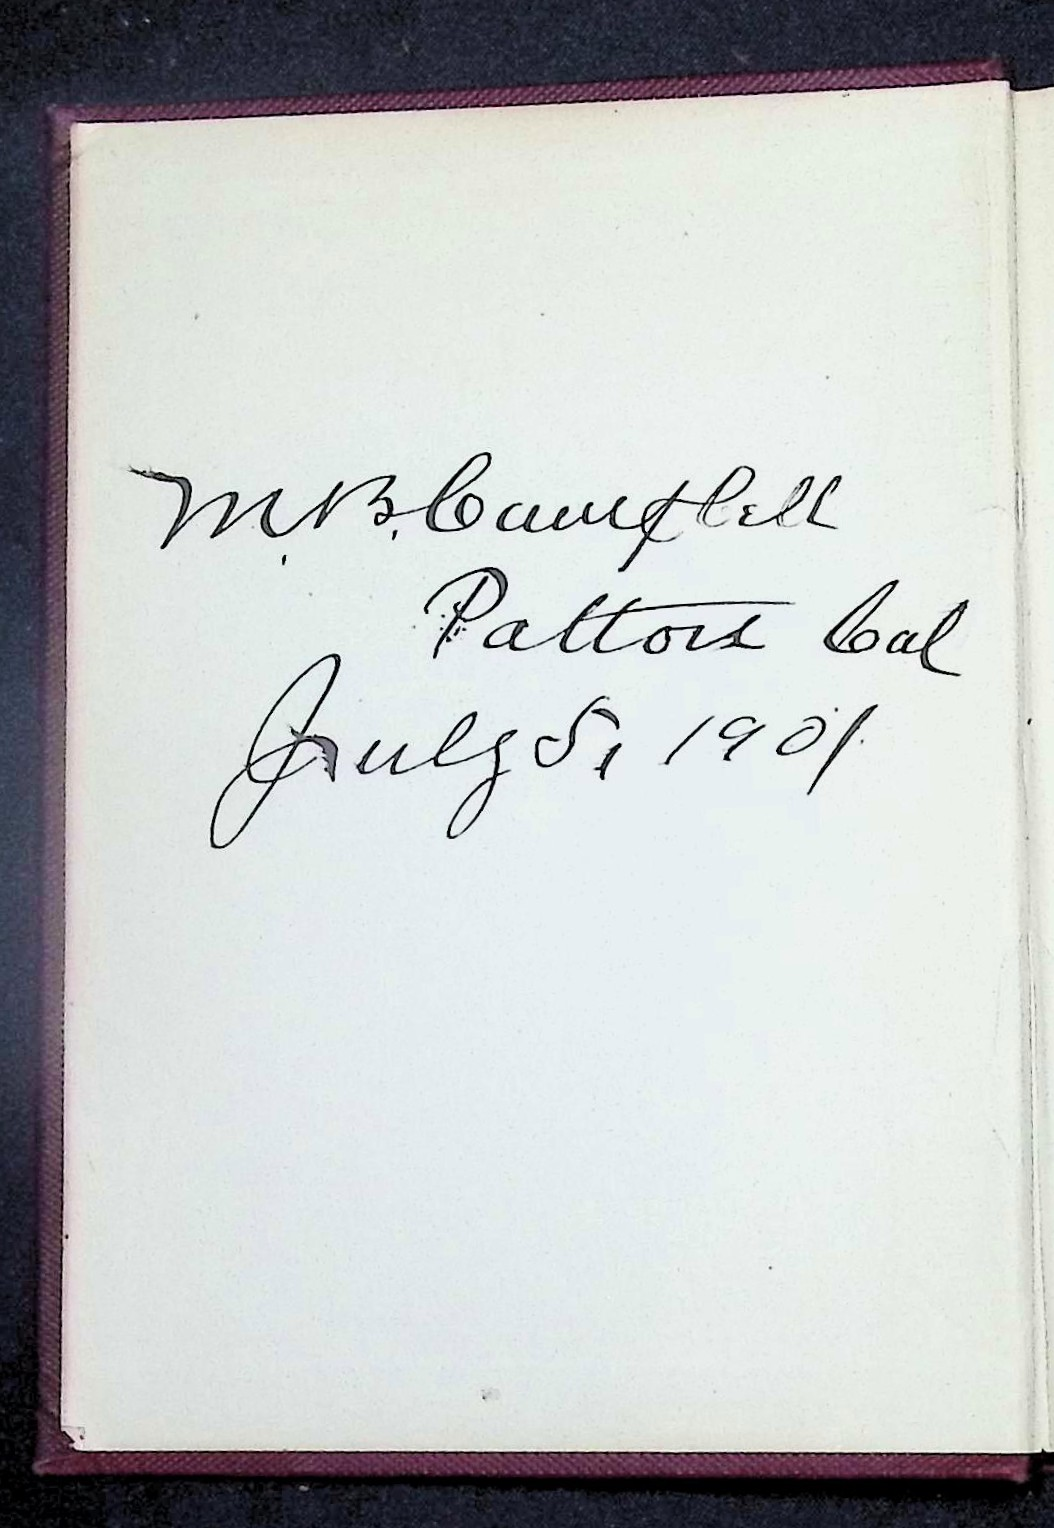 M. B. Campbell
Patton Cal
July 5, 1901